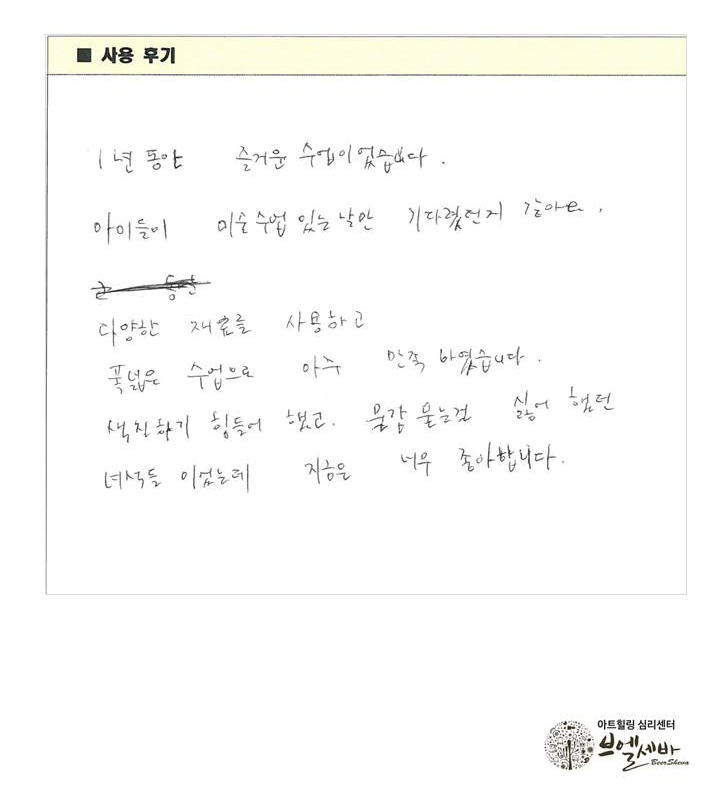 ■ 사용 후기
1년 동안 즐거운 수업이었습니다.
아이들이 미술수업 있는 날만 기다렸던거 같아요.
다양한 재료를 사용하고
폭넓은 수업으로 아주 만족하였습니다.
색칠하기 힘들어 했고. 물감 묻는걸 싫어 했던
녀석들 이었는데 지금은 너무 좋아합니다.
아트힐링 심리센터
브엘세바
BeerSheva